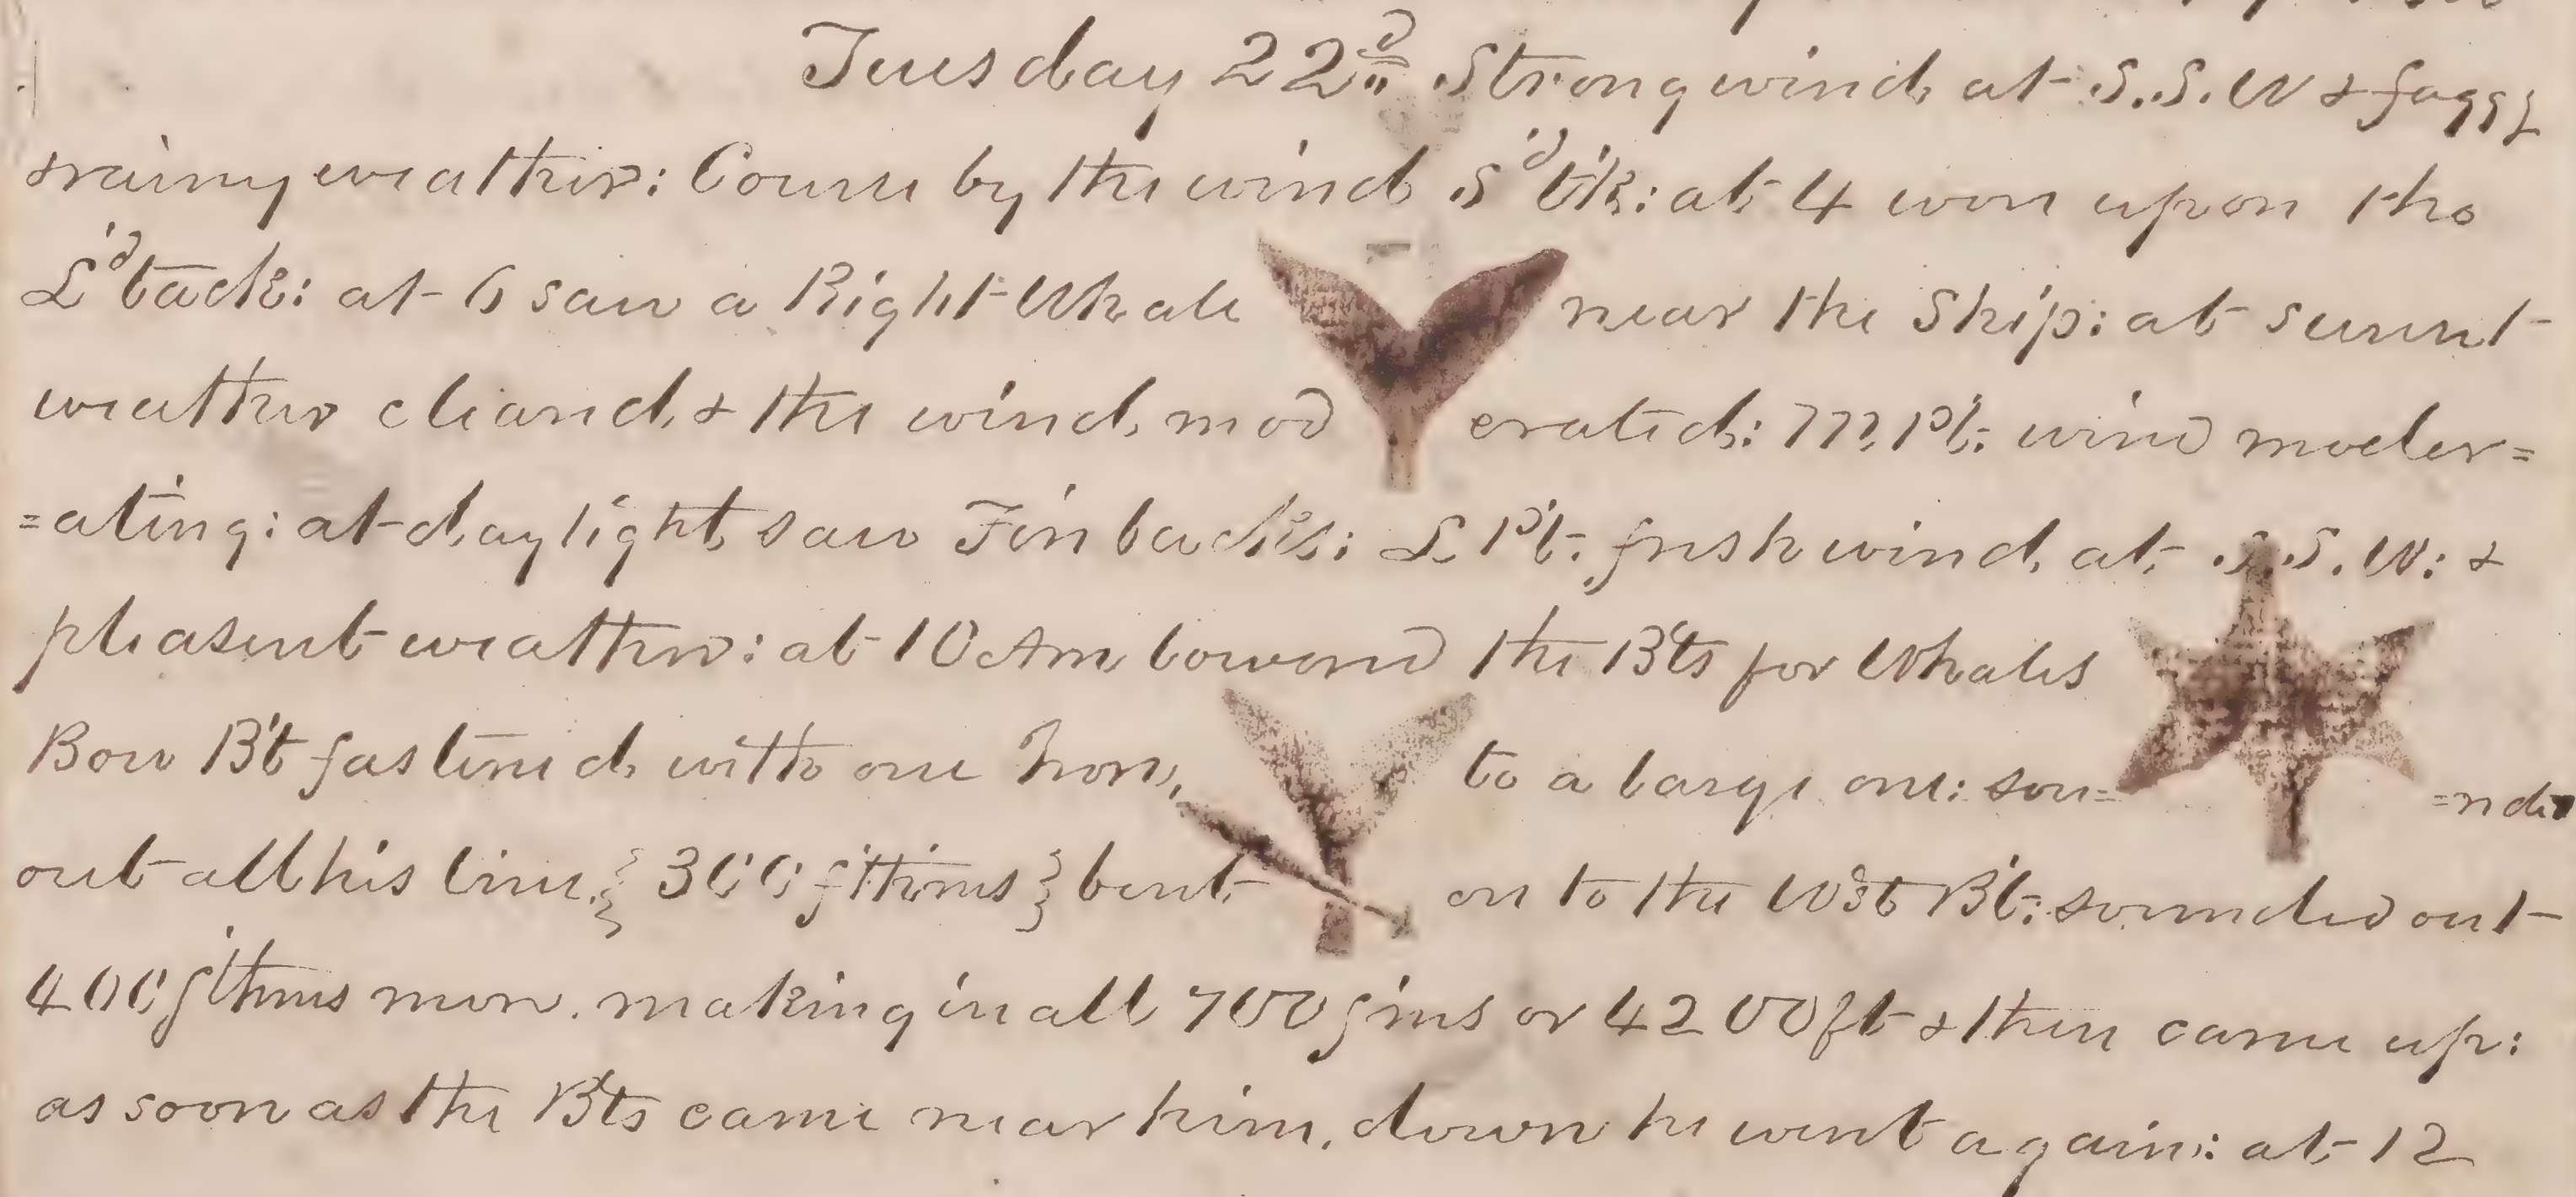 Tuesday 22d Strong wind at S.S.W & foggy
& rainy weather: Course by the wind S'd t'k: at 4 wore upon the
L'd tack: at 6 saw a Right Whale near the Ship: at sunset
weather cleared, & the wind mod erated: M, Pt: wind moder=
=ating: at daylight saw Finbacks: L Pt: fresh wind at S.S.W: &
pleasent weather: at 10 Am lowered the B'ts for Whales
Bow B't fastened with one Iron, to a large one: sou= =nded
out all his line, { 300 fthms } bent on to the Wst B't: sounded out
400 fthms more. making in all 700 fms or 4200 ft & then came up:
as soon as the B'ts came near him, down he went again: at 12